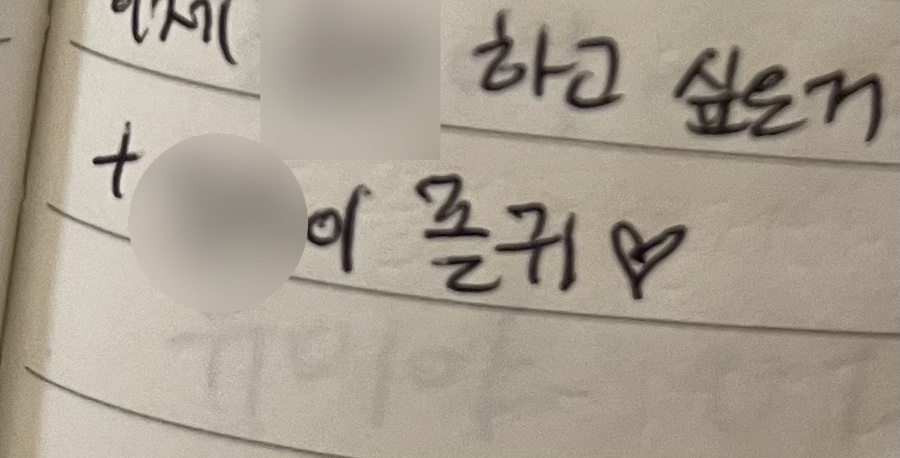 이제 하고 싶은거
+ 이 졸귀♡